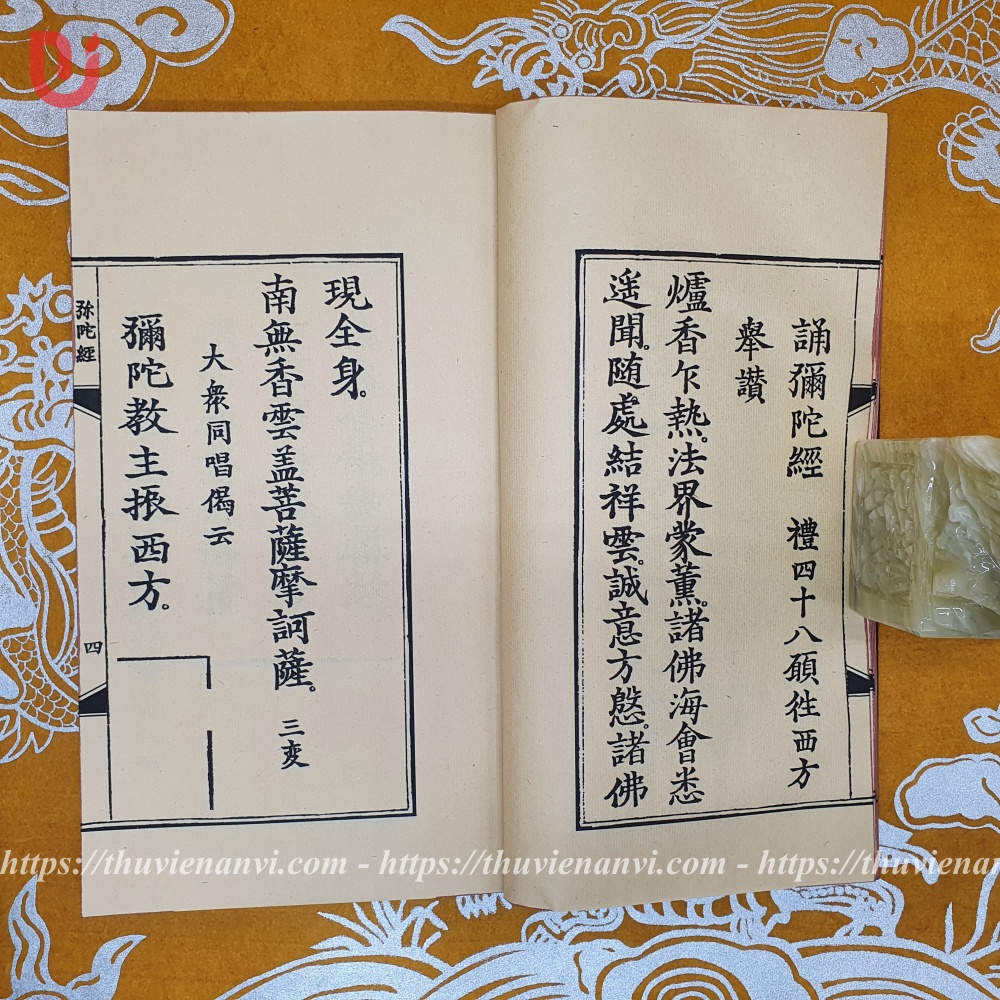 誦彌陀經 禮四十八願徃西方
舉讃
爐香乍熱。法界蒙薫。諸佛海會悉
遥聞。随處結祥雲。誠意方慇。諸佛
現全身。
南無香雲盖菩薩摩訶薩。 三变
大衆同唱偈云
彌陀教主振西方。
弥陀經
四
https://thuvienanvi.com - https://thuvienanvi.com - https://thuviena